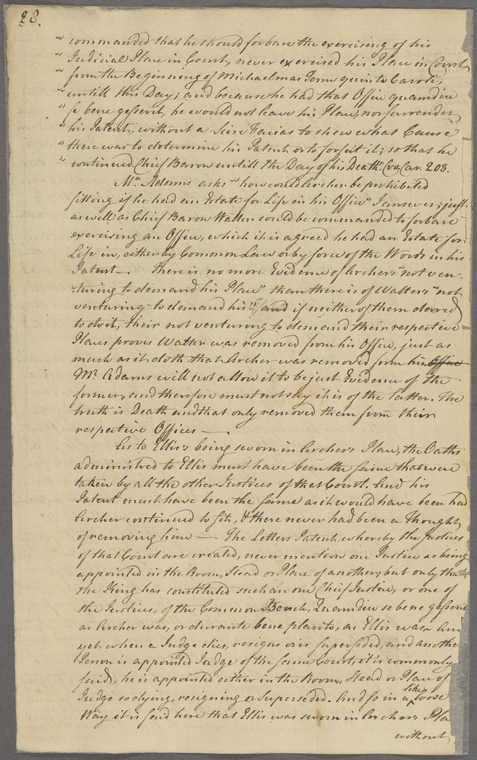 28.
" commanded that he should forbare the exercising of his
" Judicial Place in Court, never exercised his Place in Court
" from the Beginning of Michaelmas Term quinto Caroli,
" untill this Day; and because he had that Office quamdiu
" se bene gesserit, he would not leave his Place, nor surrender
" his Patent, without a Scire Facias to shew what Cause
" there was to determine his Patent or to forfeit it; so that he
" continued Chief Baron untill the Day of his Death. Cro. Car. 203.
Mr. Adams asks "how could Archer be prohibited
sitting if he held an Estate for Life in his Office" I answer; just
as well as Chief Baron Walter could be commanded to forbare
exercising an Office, which it is agreed he had an Estate for
Life in, either by Common Law or by force of the Words in his
Patent. There is no more Evidence of Archer's "not ven-
turing to demand his Place" than there is of Walter's "not
venturing to demand his"; and if neither of them dared
to do it, their not venturing to demand their respective
Places proves Walter was removed from his Office, just as
much as it doth that Archer was removed from his Office
Mr. Adams will not allow it to be just Evidence of the
former, and therefore must not say it is of the latter. The
truth is Death and that only removed them from their
respective Offices —
As to Ellis's being sworn in Archer's Place, the Oaths
administred to Ellis must have been the same that were
taken by all the other Justices of that Court. And his
Patent must have been the same as it would have been had
Archer continued to sit, & there never had been a Thought
of removing him — The Letters Patent, whereby the Justices
of that Court are created, never mention one Justice as being
appointed in the Room, Stead or Place of another; but only that
the King has constituted such an one Chief Justice, or one of
the Justices, of the Common Bench, Quamdiu se bene gesserit
as Archer was, or durante bene placito, as Ellis was. And
yet when a Judge dies, resigns or is superseded, and another
Person is appointed Judge of the same Court, it is commonly
said, he is appointed either in the Room, Stead or Place of
Judge so dying, resigning or superseded. And so in a like loose
Way it is said here that Ellis was sworn in Archer's Pla
without